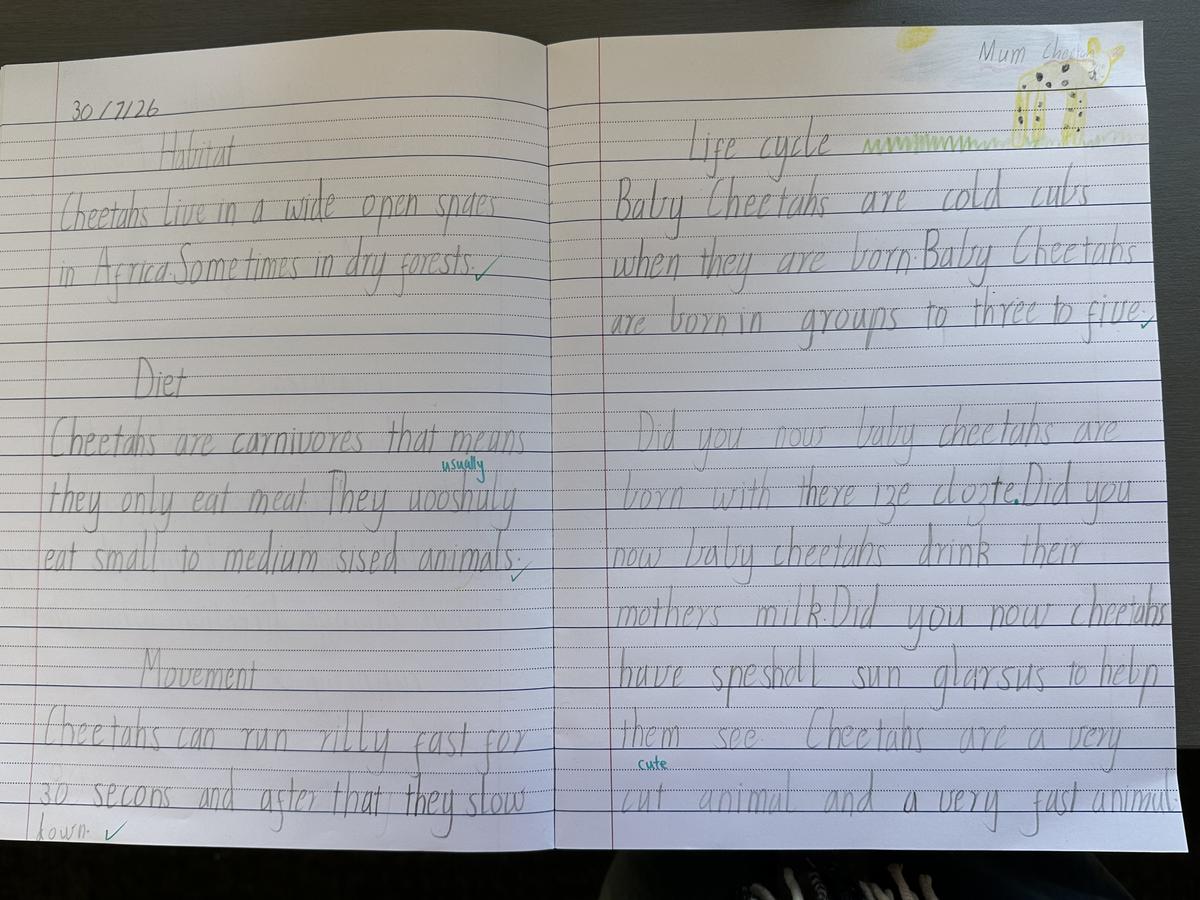 30/7/26
Habitat
Cheetahs Live in a wide open spaes
in Africa.Sometimes in dry forests.
Diet
Cheetahs are carnivores that means
usually
they only eat meat They uooshuly
eat small to medium sised animals.
Movement
Cheetahs can run rilly fast for
30 secons and after that they slow
down.
Mum Cheetah
Life cycle
Baby Cheetahs are cold cubs
when they are born.Baby Cheetahs
are born in groups to three to five.
Did you now baby cheetahs are
born with there ize clozte.Did you
now baby cheetahs drink their
mothers milk.Did you now cheetahs
have speshall sun glarsus to help
them see. Cheetahs are a very
cute
cut animal and a very fast animal.